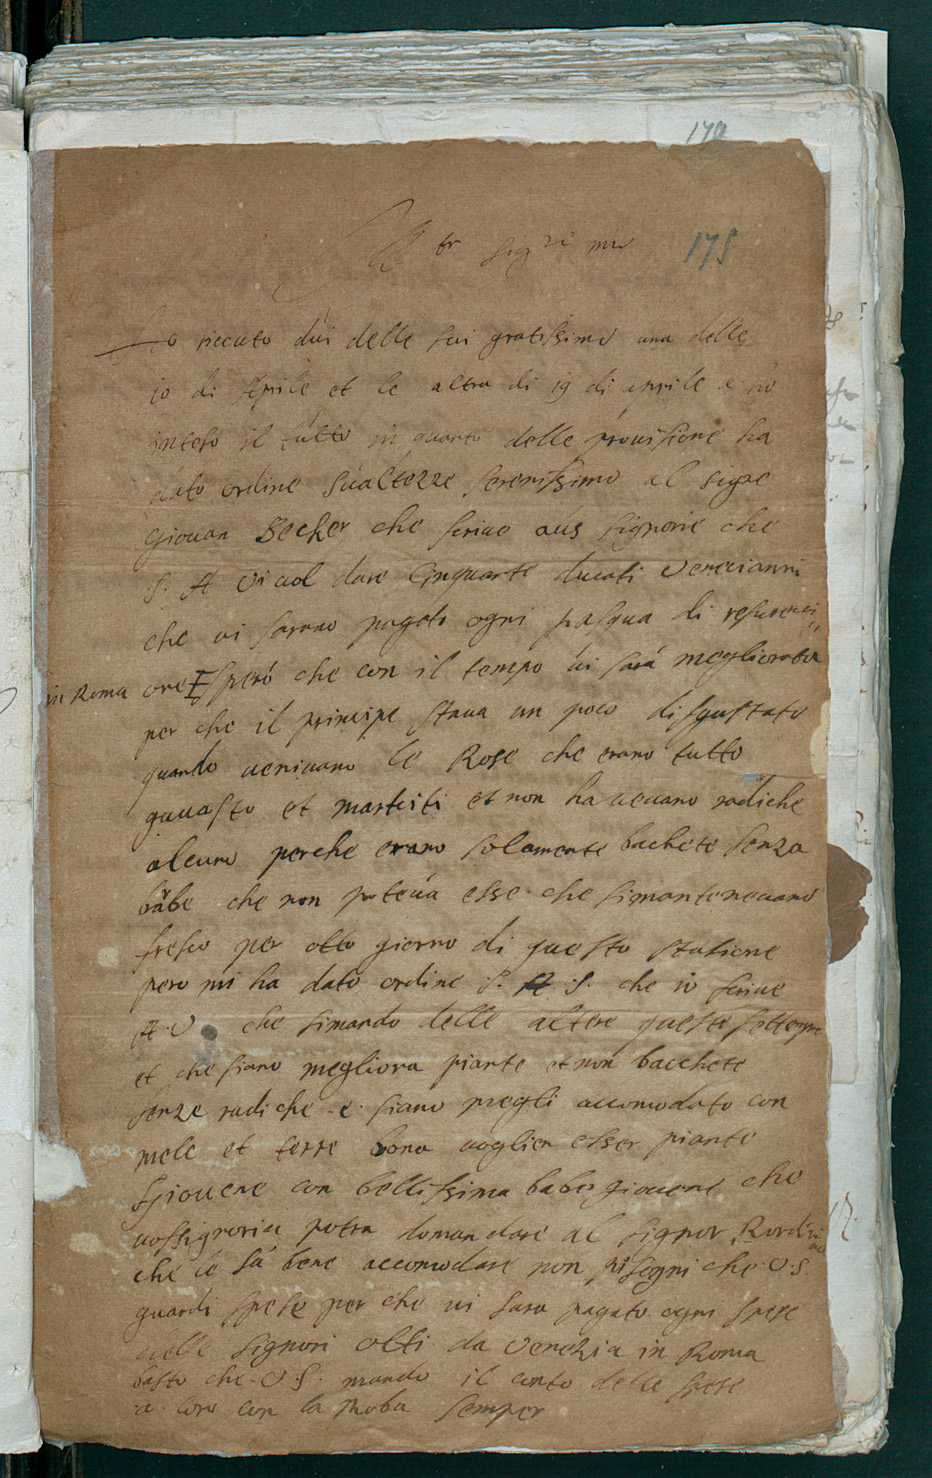 179
175
sig re mio
Ho riceuto dui delle sui gratissimo una delle
10 di Aprile et le altra di 19 di aprile e ho
inteso il tutto in quanto delle provisione ha
dato ordine sualtezze serenissimo al sigre
Giovan Becker che scrive aus signorie che
S. A vi vol dare Cinquante ducati Veneciann
che vi sarano pagati ogni pasqua di resureci
in Roma one E però che con il tempo vi sarà meglioratu
per che il principe stava un poco disgustato
quando venivano le Rose che erano tutto
guuasto et martiti et non havevano radiche
alcuno perche erano solamente bachete senza
babe che non poteva esse che simantenevano
fresco per otto giorno di questo statione
pero mi ha dato ordine S. A S. che io scrive
A. V. che simando delle altere queste settemre
et che siano megliora piante et non bacchete
senze radiche e siano megli accomodato con
mele et terre bona voglien esser piante
Giovene con bellissima babe giovene che
vossignoria potra domandare al signor Rordini
che le sà bene accomodare non pisogni che V.S.
guardi spese per che vi sara pagato ogni spese
delle signori olti da Venezia in Roma
basto che V S. mando il conto delle spese
a loro con la Roba semper